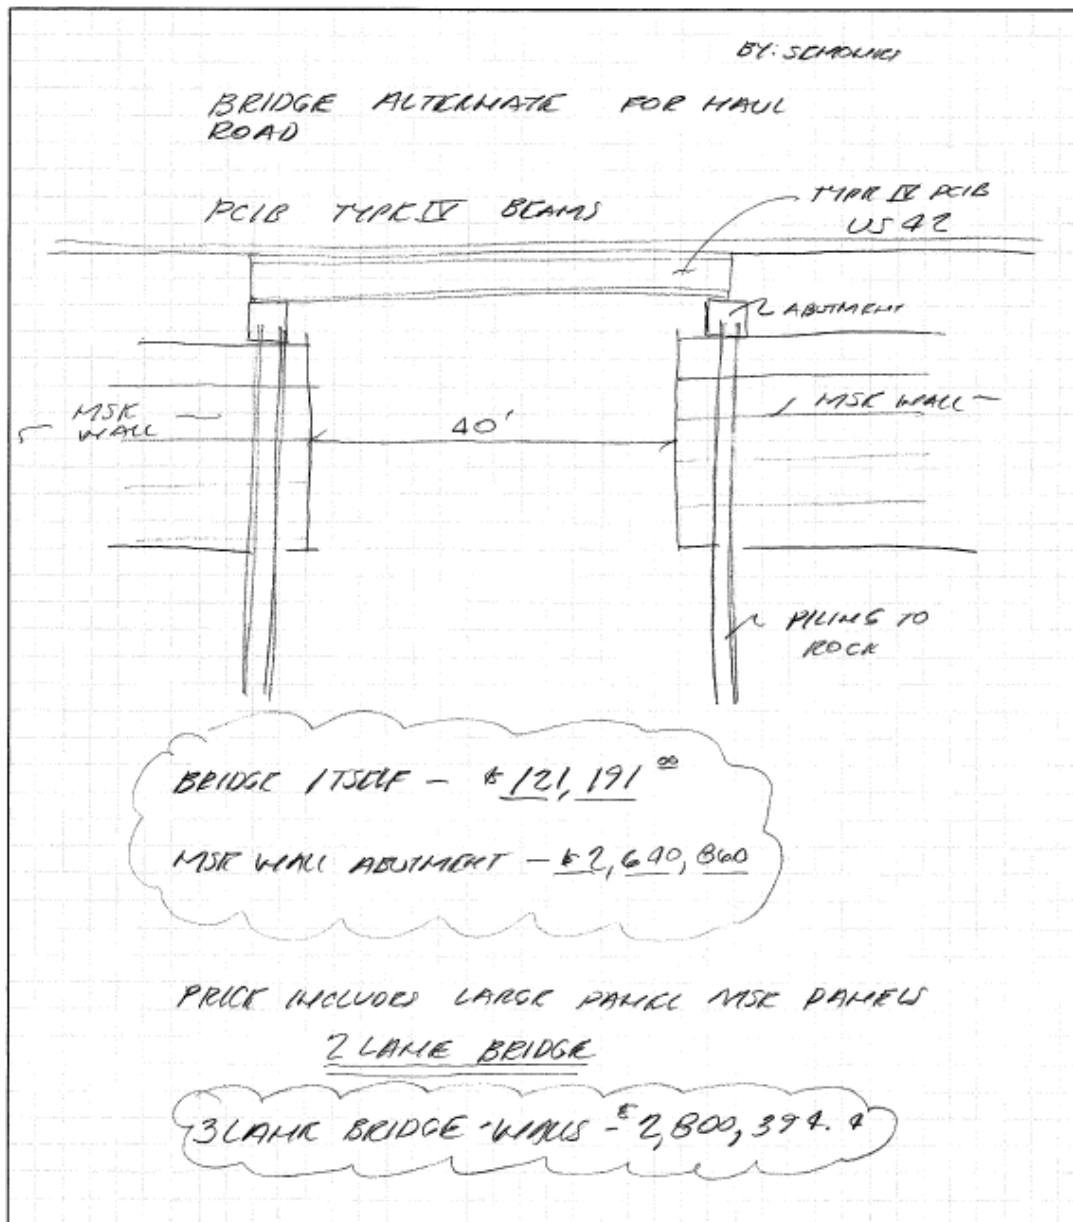 BY: SEMONIN
BRIDGE ALTERNATE FOR HAUL
ROAD
PCIB TYPE IV BEAMS
TYPE IV PCIB
US 42
ABUTMENT
MSE
WALL
40'
MSE WALL
PILING TO
ROCK
BRIDGE ITSELF - $121,191 00
MSE WALL ABUTMENT - $2,640,860
PRICE INCLUDES LARGE PANEL MSE PANELS
2 LANE BRIDGE
3 LANE BRIDGE - WALLS - $2,800,394.